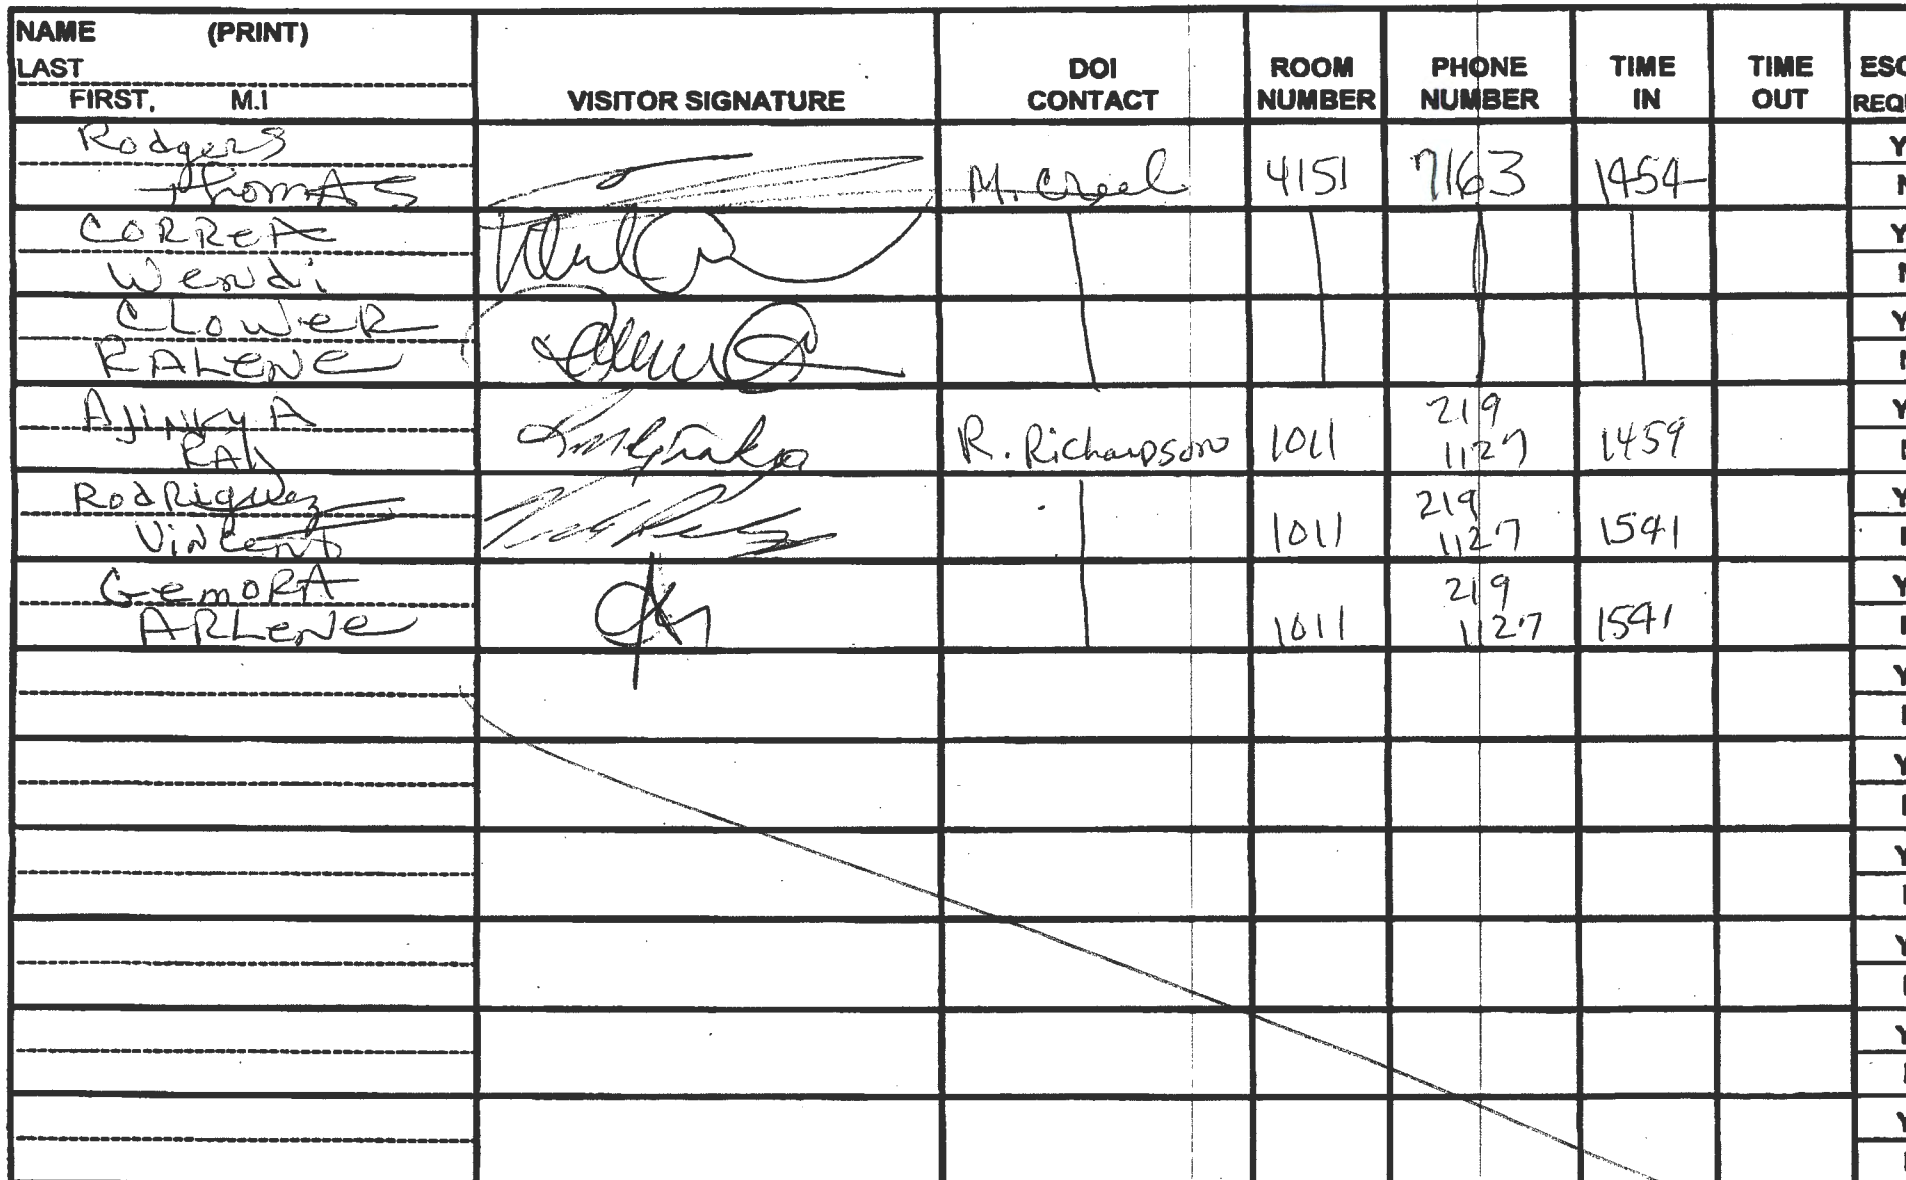 NAME (PRINT)
LAST
FIRST, M.I
VISITOR SIGNATURE
DOI CONTACT
ROOM NUMBER
PHONE NUMBER
TIME IN
TIME OUT
Rodgers
Thomas M. Creel 4151 7163 1454
CORREA
Wendi
CLOWER
RALENE
AJINKYA 219
RAJ R. Richardson 1011 1127 1459
Rodriguez 219
Vincent 1011 1127 1541
GemoRA 219
ARLENE 1011 1127 1541